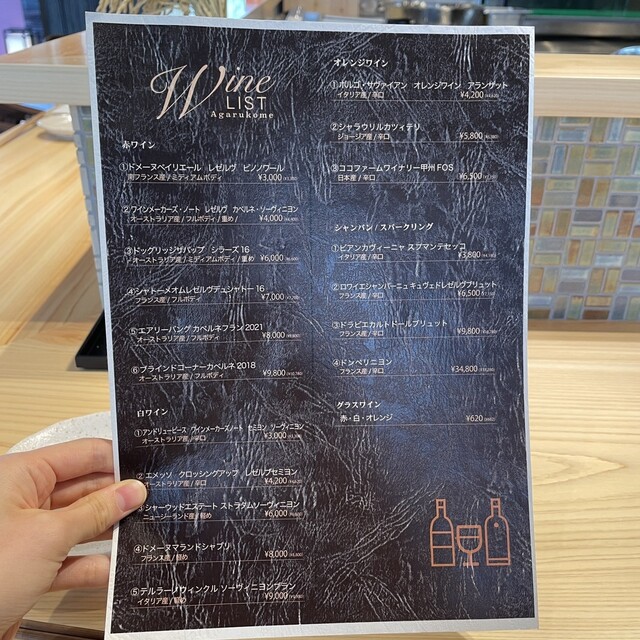 Wine
LIST
Agarukome
赤ワイン
①ドメーヌベイリエール レゼルヴ ピノノワール
南フランス産 / ミディアムボディ ¥3,000
②ワインメーカーズ・ノート レゼルヴ カベルネ・ソーヴィニヨン
オーストラリア産 / フルボディ / 重め / ¥4,000
③ドッグリッジザパップ シラーズ 16
オーストラリア産 / ミディアムボディ / 重め ¥6,000
④シャトーメオムレゼルヴデュシャトー 16
フランス産 / フルボディ ¥7,000
⑤エアリーバンク カベルネフラン 2021
オーストラリア産 / フルボディ ¥8,000
⑥ブラインドコーナーカベルネ 2018
オーストラリア産 / フルボディ ¥9,800
白ワイン
①アンドリューピース ワインメーカーズノート セミヨン ソーヴィニヨン
オーストラリア産 / 辛口 ¥3,000
②エメッソ クロッシングアップ レゼルブセミヨン
オーストラリア産 / 辛口 ¥4,200
シャーウッドエステート ストラタムソーヴィニヨン
ニュージーランド産 / 軽め ¥6,000
④ドメーヌマランドシャブリ
フランス産 / 軽め ¥8,000
⑤テルラーノ ウィンクル ソーヴィニヨンブラン
イタリア産 / 軽め ¥9,000
オレンジワイン
①ボルゴ・サヴァイアン オレンジワイン アランザット
イタリア産 / 辛口 ¥4,200
②シャラウリルカツィテリ
ジョージア産 / 辛口 ¥5,800
③ココファームワイナリー甲州 FOS
日本産 / 辛口 ¥6,500
シャンパン / スパークリング
①ビアンカヴィーニャ スプマンテセッコ
イタリア産 / 辛口 ¥3,800
②ロワイエシャンパーニュ キュヴェドレゼルヴブリュット
フランス産 / 辛口 ¥6,500
③ドラピエカルトドールブリュット
フランス産 / 辛口 ¥9,800
④ドンペリニヨン
フランス産 / 辛口 ¥34,800
グラスワイン
赤・白・オレンジ ¥620